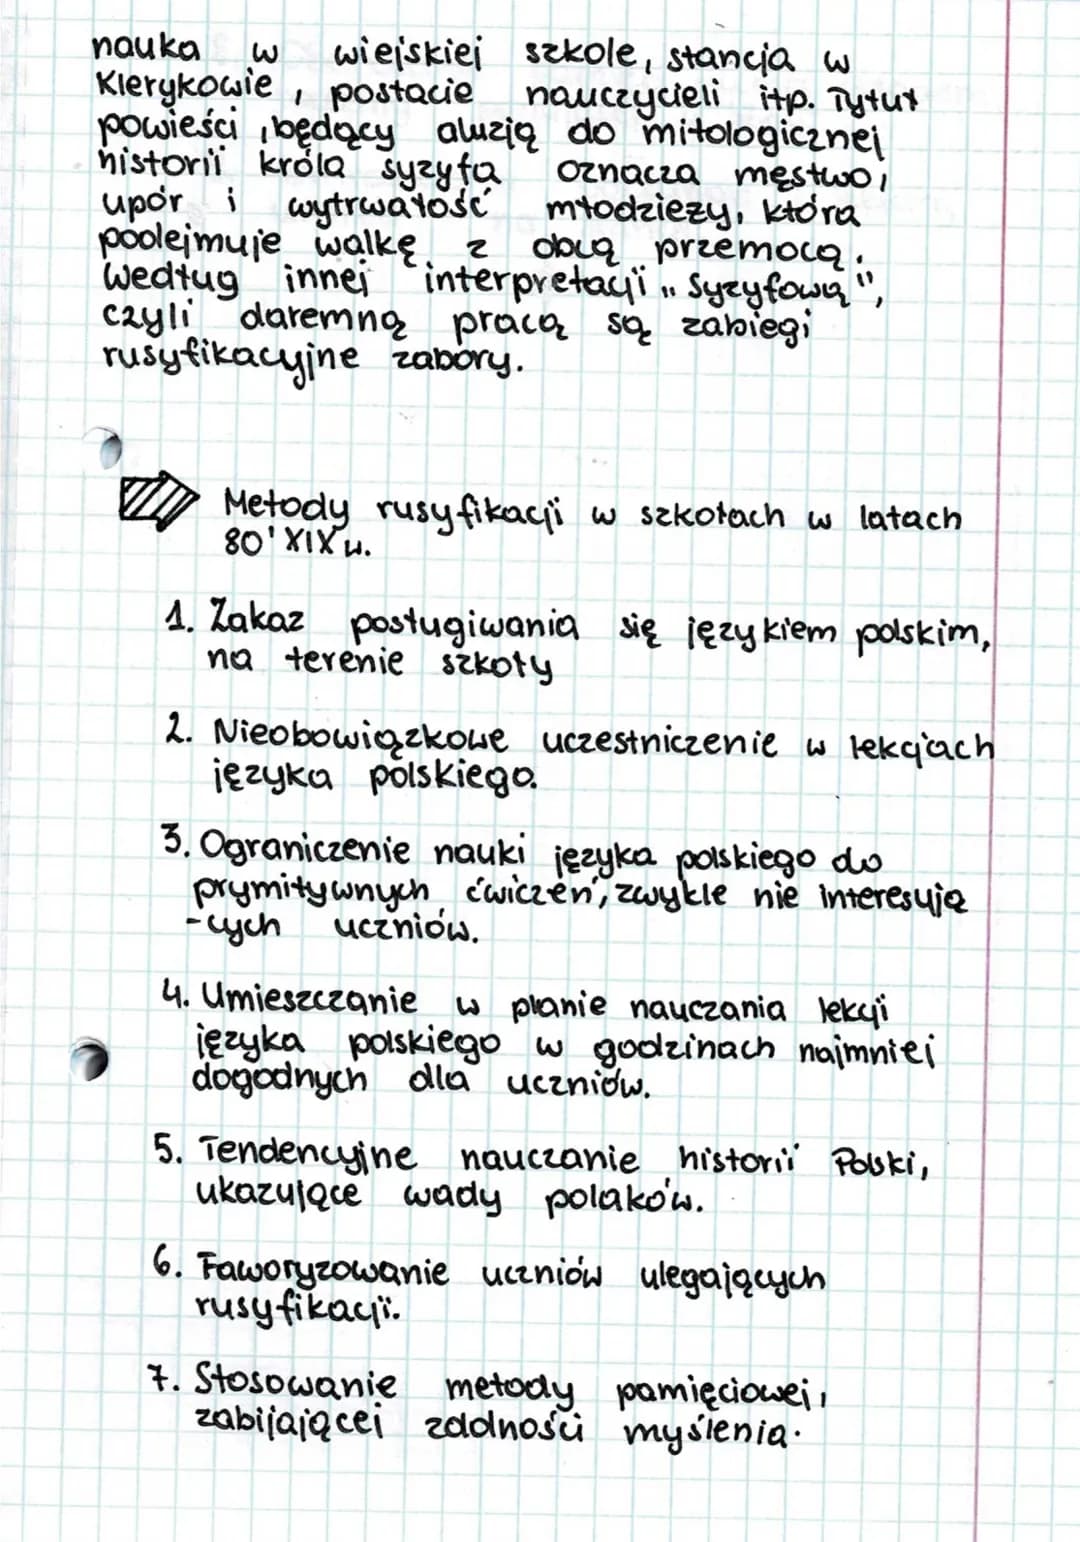 nauka w wiejskiej szkole, stancja w
Klerykowie, postacie nauczycieli itp. Tytuł
powieści, będący aluzją do mitologicznej
historii króla syzyfa oznacza męstwo,
upór i wytrwałość młodzieży, która
podejmuje walkę z obcą przemocą.
Według innej interpretacji "Syzyfową",
czyli daremną pracą są zabiegi
rusyfikacyjne zabory.
Metody rusyfikacji w szkołach w latach
80' XIX w.
1. Zakaz posługiwania się językiem polskim,
na terenie szkoły
2. Nieobowiązkowe uczestniczenie w lekcjach
języka polskiego.
3. Ograniczenie nauki języka polskiego do
prymitywnych ćwiczeń, zwykle nie interesują
-cych uczniów.
4. Umieszczanie w planie nauczania lekcji
języka polskiego w godzinach najmniej
dogodnych dla uczniów.
5. Tendencyjne nauczanie historii Polski,
ukazujące wady polaków.
6. Faworyzowanie uczniów ulegających
rusyfikacji.
7. Stosowanie metody pamięciowej,
zabijającej zdolności myślenia.